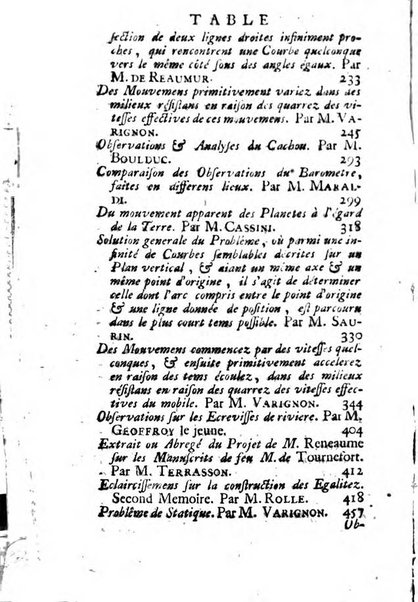 TABLE
section de deux lignes droites infiniment pro-
ches, qui rencontrent une Courbe quelconque
vers le même côté sous des angles égaux. Par
M. DE REAUMUR. 233
Des Mouvemens primitivement variez dans des
milieux résistans en raison des quarrez des vi-
tesses effectives de ces mouvemens. Par M. VA-
RIGNON. 245
Observations & Analyses du Cachou. Par M.
BOULDUC. 293
Comparaison des Observations du Barometre,
faites en differens lieux. Par M. MARAL-
DI. 299
Du mouvement apparent des Planetes à l'égard
de la Terre. Par M. CASSINI. 318
Solution generale du Problême, où parmi une in-
finité de Courbes semblables décrites sur un
Plan vertical, & aiant un même axe & un
même point d'origine, il s'agit de déterminer
celle dont l'arc compris entre le point d'origine
& une ligne donnée de position, est parcouru
dans le plus court tems possible. Par M. SAU-
RIN. 330
Des Mouvemens commencez par des vitesses quel-
conques, & ensuite primitivement accelerez
en raison des tems écoulez, dans des milieux
résistans en raison des quarrez des vitesses effec-
tives du mobile. Par M. VARIGNON. 344
Observations sur les Ecrevisses de riviere. Par M.
GEOFFROY le jeune. 404
Extrait ou Abregé du Projet de M. Reneaume
sur les Manuscrits de feu M. de Tournefort.
Par M. TERRASSON. 412
Eclaircissemens sur la construction des Egalitez.
Second Memoire. Par M. ROLLE. 418
Problême de Statique. Par M. VARIGNON. 457
Ob-